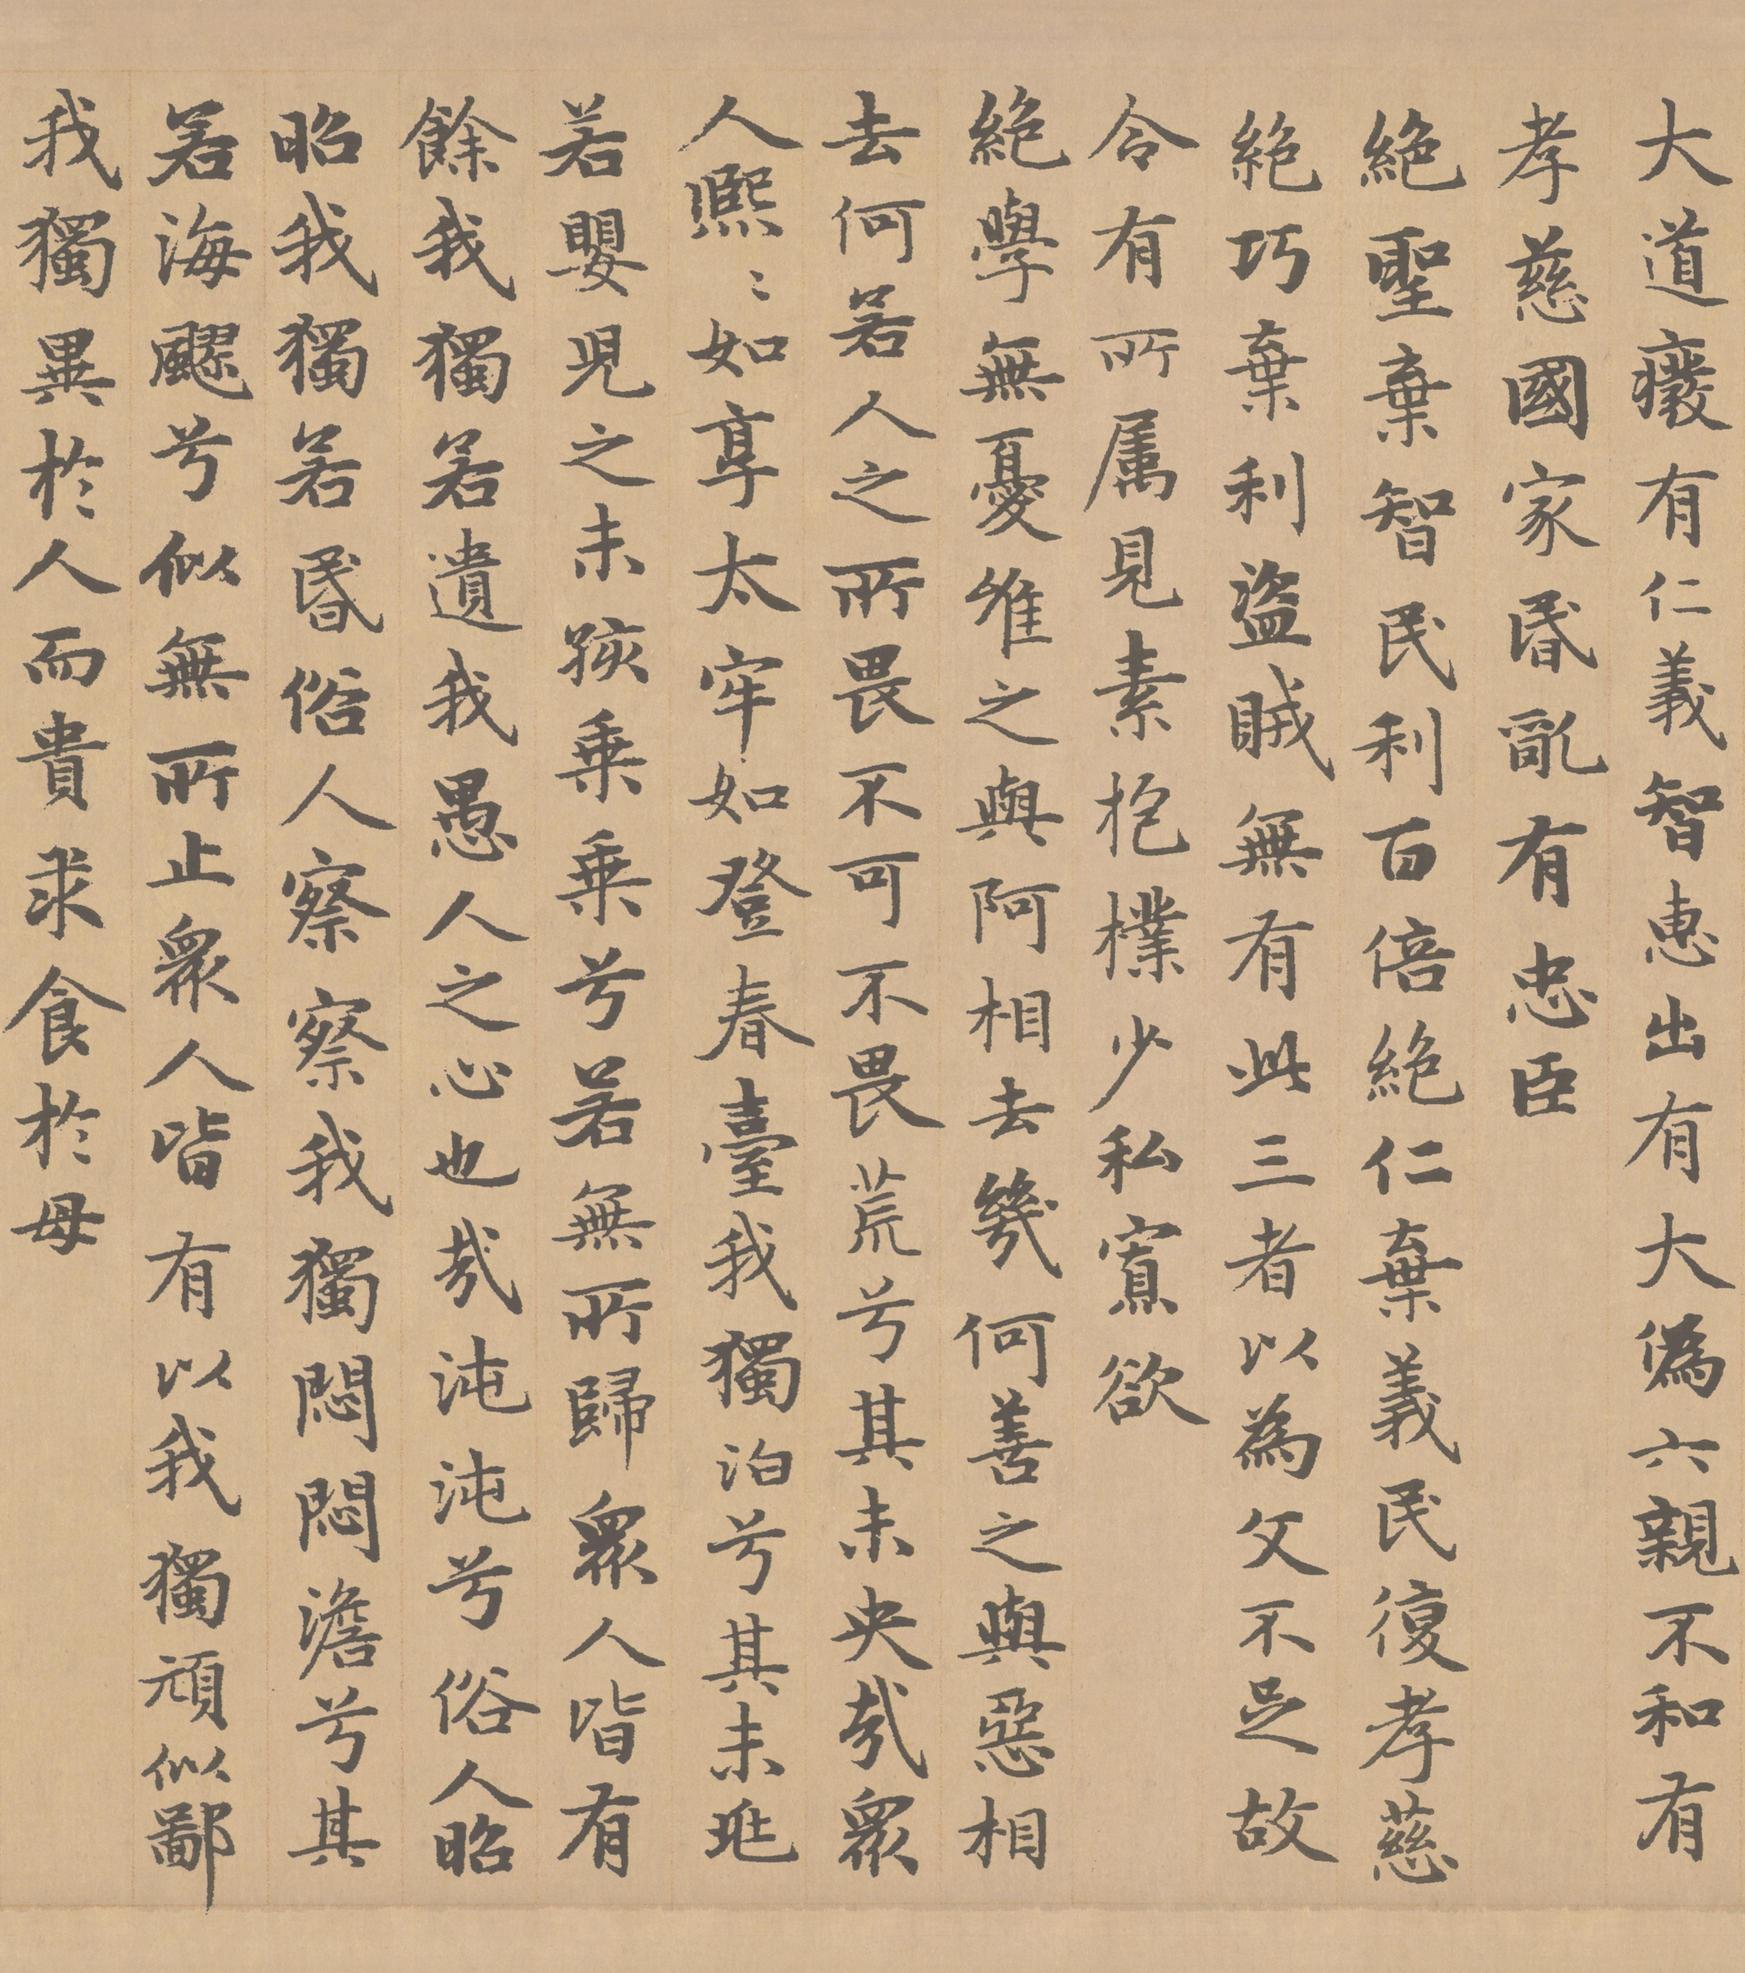 大道癈有仁義智惠出有大偽六親不和有
孝慈國家昬亂有忠臣
絕聖棄智民利百倍絕仁棄義民復孝慈
絕巧棄利盜賊無有此三者以為文不足故
令有所属見素抱樸少私寡欲
絕學無憂唯之與阿相去幾何善之與惡相
去何若人之所畏不可不畏荒兮其未央哉衆
人熙〻如享太牢如登春臺我獨泊兮其未兆
若嬰兒之未孩乗乗兮若無所歸衆人皆有
餘我獨若遺我愚人之心也哉沌沌兮俗人昭
昭我獨若昬俗人察察我獨悶悶澹兮其
若海飂兮似無所止衆人皆有以我獨頑似鄙
我獨異於人而貴求食於母